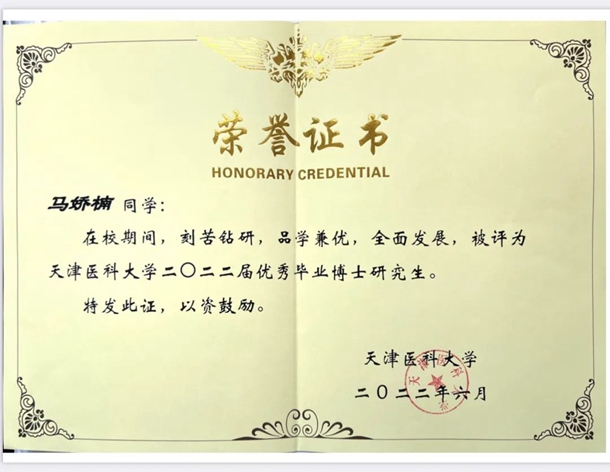 荣誉证书
HONORARY CREDENTIAL
马娇楠 同学：
在校期间，刻苦钻研，品学兼优，全面发展，被评为
天津医科大学二〇二二届优秀毕业博士研究生。
特发此证，以资鼓励。
天津医科大学
二〇二二年六月